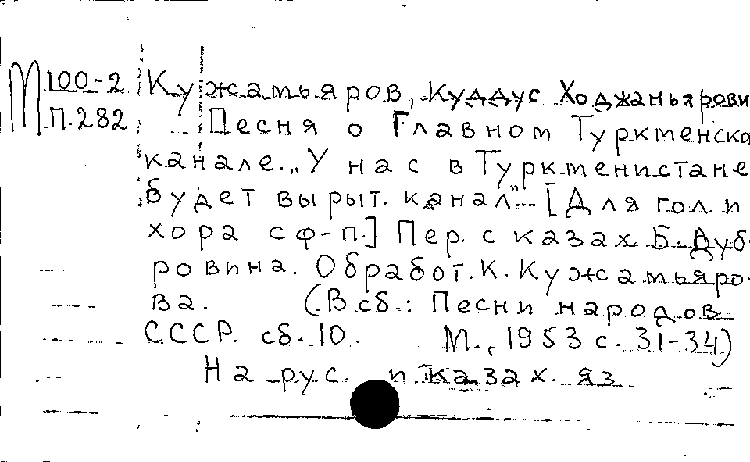 М 100-2 Кужамьяров, Куддус Ходжаньярови
П.282 Песня о Главном Туркменско
канале. „У нас в Туркменистане
будет вырыт канал“ [Для гол. и
хора с ф-п.] Пер. с казах Б. Дуб-
ровина. Обработ. К. Кужамьяро-
ва. (В сб.: Песни народов
СССР. сб. 10. М., 1953 с. 31-34)
На рус. и казах. яз.